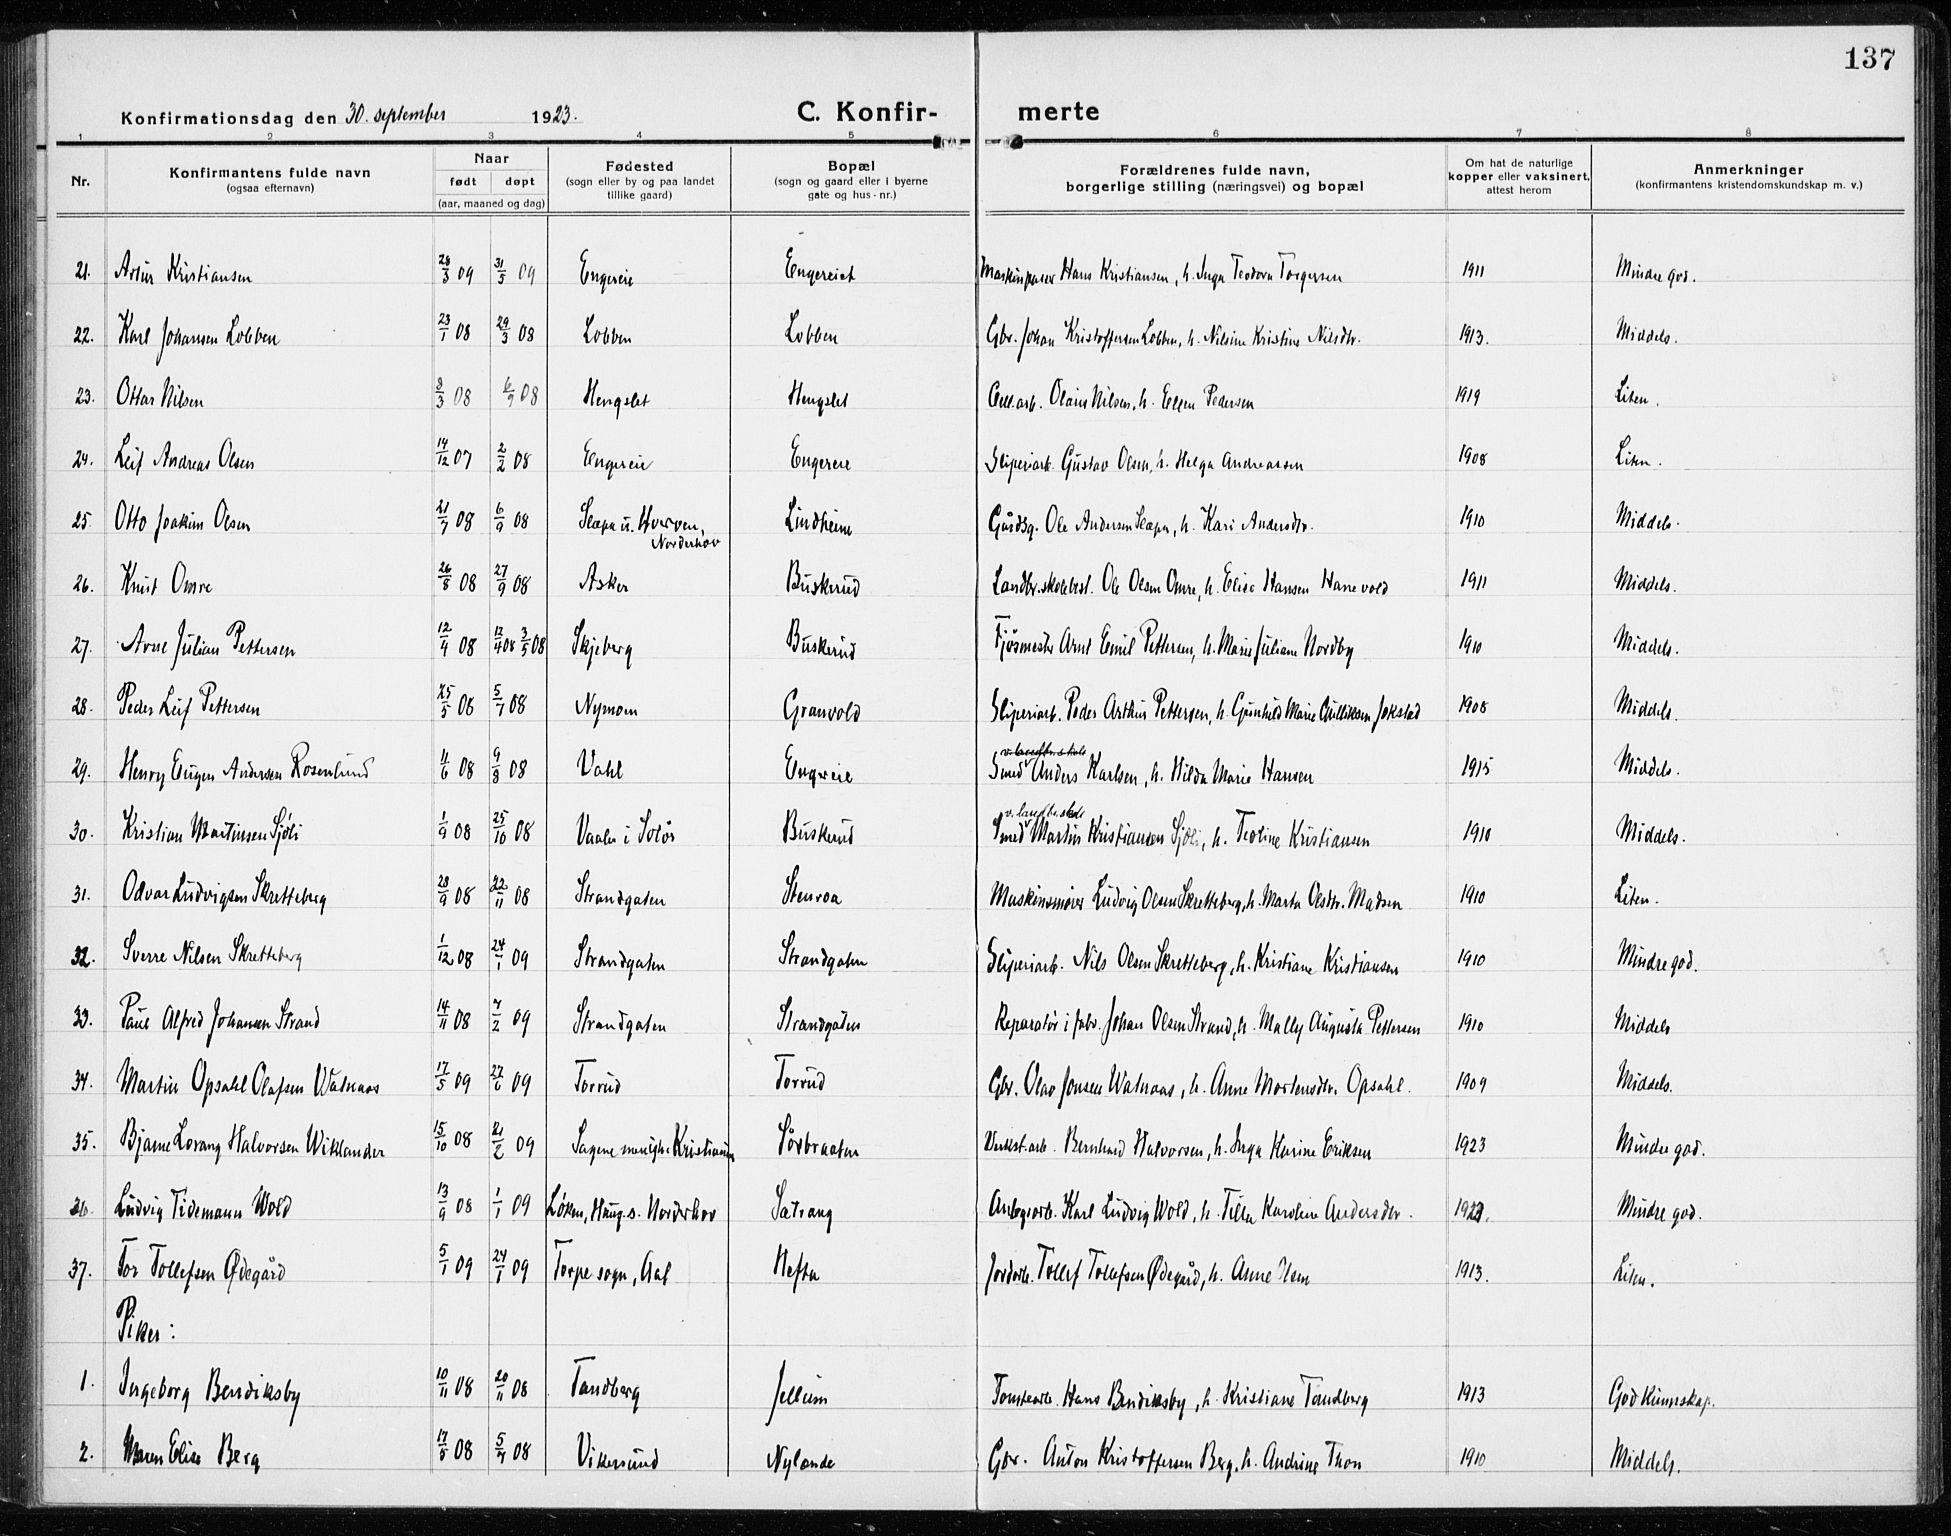 137
Konfirmationsdag den 30. september 1923.
C. Konfirmerte
1 2 3 4 5 6 7 8
Nr. | Konfirmantens fulde navn (ogsaa efternavn) | Naar født døpt (aar, maaned og dag) | Fødested (sogn eller by og paa landet tillike gaard) | Bopæl (sogn og gaard eller i byerne gate og hus-nr.) | Forældrenes fulde navn, borgerlige stilling (næringsvei) og bopæl | Om hat de naturlige kopper eller vaksinert, attest herom | Anmerkninger (konfirmantens kristendomskundskap m. v.)
21. Artur Kristiansen 28/3 09 31/5 09 Engereie Engereiet Maskinpasser Hans Kristiansen, h. Inga Teodora Torgersen 1911 Mindre god.
22. Karl Johansen Lobben 23/1 08 29/3 08 Lobben Lobben Gbr. Johan Kristoffersen Lobben, h. Nilsine Kristine Nilsdtr. 1913. Middels.
23. Ottar Nilsen 8/3 08 6/9 08 Hengslet Hengslet Cell.arb. Olaus Nilsen, h. Ellen Pedersen 1919 Liten.
24. Leif Andreas Olsen 14/12 07 2/2 08 Engereie Engereie Sliperiarb. Gustav Olsen, h. Helga Andreassen 1908 Liten.
25. Otto Joakim Olsen 21/7 08 6/9 08 Slapa u. Hverven, Norderhov Lindheim Gårdsg. Ole Andersen Slapa, h. Kari Andersdtr. 1910 Middels.
26. Knut Omre 26/8 08 27/9 08 Asker Buskerud Landbr.skolebest. Ole Olsen Omre, h. Elise Hansen Hanevold 1911 Middels.
27. Arne Julian Pettersen 12/4 08 12/4 08 3/5 08 Skjeberg Buskerud Fjøsmester Arnt Emil Pettersen, h. Marie Juliane Nordby 1910 Middels.
28. Peder Leif Pettersen 25/5 08 5/7 08 Nymoen Granvold Sliperiarb. Peder Arthur Pettersen, h. Gunhild Marie Gulliksen Jokstad 1908 Middels.
29. Henry Eugen Andersen Rosenlund 11/6 08 9/8 08 Vahl Engereie Smed v. landbr.skole Anders Karlsen, h. Hilda Marie Hansen 1915 Middels.
30. Kristian Martinsen Sjöli 1/9 08 25/10 08 Vaaler i Solör Buskerud Smed v. landbr.skole Martin Kristiansen Sjöli, h. Teoline Kristiansen 1910 Middels.
31. Odvar Ludvigsen Skretteberg 28/9 08 22/11 08 Strandgaten Stenroa Maskinsmører Ludvig Olsen Skretteberg, h. Marta Olsdtr. Madsen 1910 Liten.
32. Sverre Nilsen Skretteberg 1/12 08 24/1 09 Strandgaten Strandgaten Sliperiarb. Nils Olsen Skretteberg, h. Kristiane Kristiansen 1910 Mindre god.
33. Paul Alfred Johansen Strand 14/11 08 7/2 09 Strandgaten Strandgaten Reparatör i fabr. Johan Olsen Strand, h. Mally Augusta Pettersen 1910 Middels
34. Martin Opsahl Olafsen Watnaas 17/5 09 27/6 09 Torrud Torrud Gbr. Olav Jonsen Watnaas, h. Anne Mortensdtr. Opsahl. 1909 Middels.
35. Bjarne Lorang Halvorsen Wiklander 15/10 08 21/2 09 Sagene menighet Kristiania Sörbraaten Verkst.arb. Bernhard Halvorsen, h. Inga Harine Eriksen 1923 Mindre god.
36. Ludvig Tidemann Wold 13/9 08 1/1 09 Løken, Haug s. Norderhov Sætrang Anlegsarb. Karl Ludvig Wold, h. Tilla Karoline Andersdtr. Mindre god.
37. Tor Tollefsen Ødegård 5/1 09 24/1 09 Torpe sogn, Aal Hefta Jordarb. Tollef Tollefsen Ødegård, h. Anne Nem 1913. Liten.
Piker:
1. Ingeborg Bendiksby 10/11 08 20/11 08 Tandberg Jellum Tomtearb. Hans Bendiksby, h. Kristiane Tandberg 1913 God kunnskap.
2. Maren Elise Berg 17/5 08 5/7 08 Vikersund Nylande Gbr. Anton Kristoffersen Berg, h. Andrine Thon 1910 Middels.